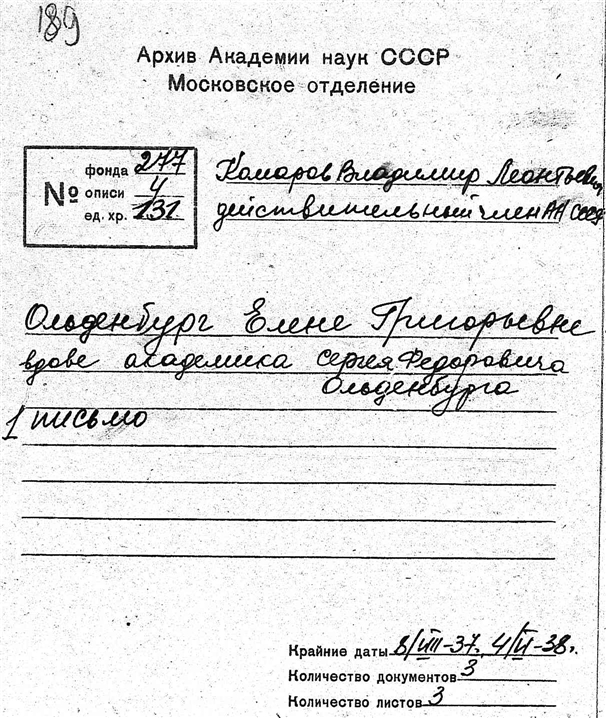 189
Архив Академии наук СССР
Московское отделение
№ фонда 277
описи 4
ед. хр. 131
Комаров Владимир Леонтьевич,
действительный член АН СССР
Ольденбург Елене Григорьевне
вдове академика Сергея Федоровича
Ольденбурга
1 письмо
Крайние даты 8/VIII-37. 4/II-38.
Количество документов 3
Количество листов 3